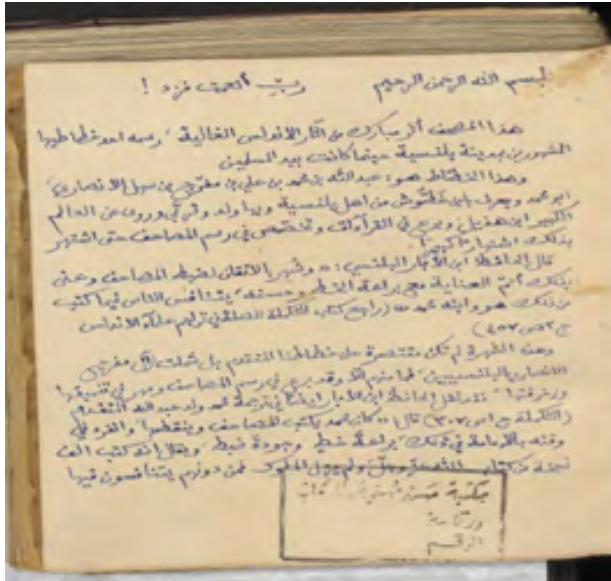 بسم الله الرحمن الرحيم ربّ أنعمت فزد !
هذا المصحف المبارك من آثار الاندلس الغالية رسمه احد خطاطيها
المشهورين بمدينة بلنسية حينما كانت بيد المسلمين
وهذا الخطاط هو: عبد الله بن محمد بن علي بن مفرّج بن سهل الانصاري
ابو محمد ويعرف بابن غطّوش من اهل بلنسية وبها ولد وروى عن العالم
الكبير ابن هذيل وبرع في القرآءات وتخصّص في رسم المصاحف حتى اشتهر
بذلك اشتهارًا كبيرًا
قال الحافظ ابن الأبّار البلنسي: وشهر بالاتقان لضبط المصاحف وعنى
بذلك أتمّ العناية مع براعة الخط وحسنه يتنافس الناس فيما كتب
من ذلك هو وابنه محمد (راجع كتاب التكملة لصلة في تراجم علماء الاندلس
ج ٢ ص
وهذه الشهرة لم تكن مقتصرة على خطاطنا المتقدم بل شملت مفرج
الانصاريين البلنسيين في رسم المصاحف ومهر في تنميقها
وزخرفتها الحافظ ابن الابار في ترجمة محمد ولد عبد الله المتقدم
(التكملة ج ١ ص ٣٠٢) قال: كان محمد يكتب المصاحف وينقطها وانفرد في
وقته بالامامة في ذلك براعة خط وجودة ضبط ويقال انه كتب الف
نسخة من كتاب الله عزّ وجلّ ولم يزل الملوك فمن دونهم يتنافسون فيها
مكتبة
وزارة
الرقم